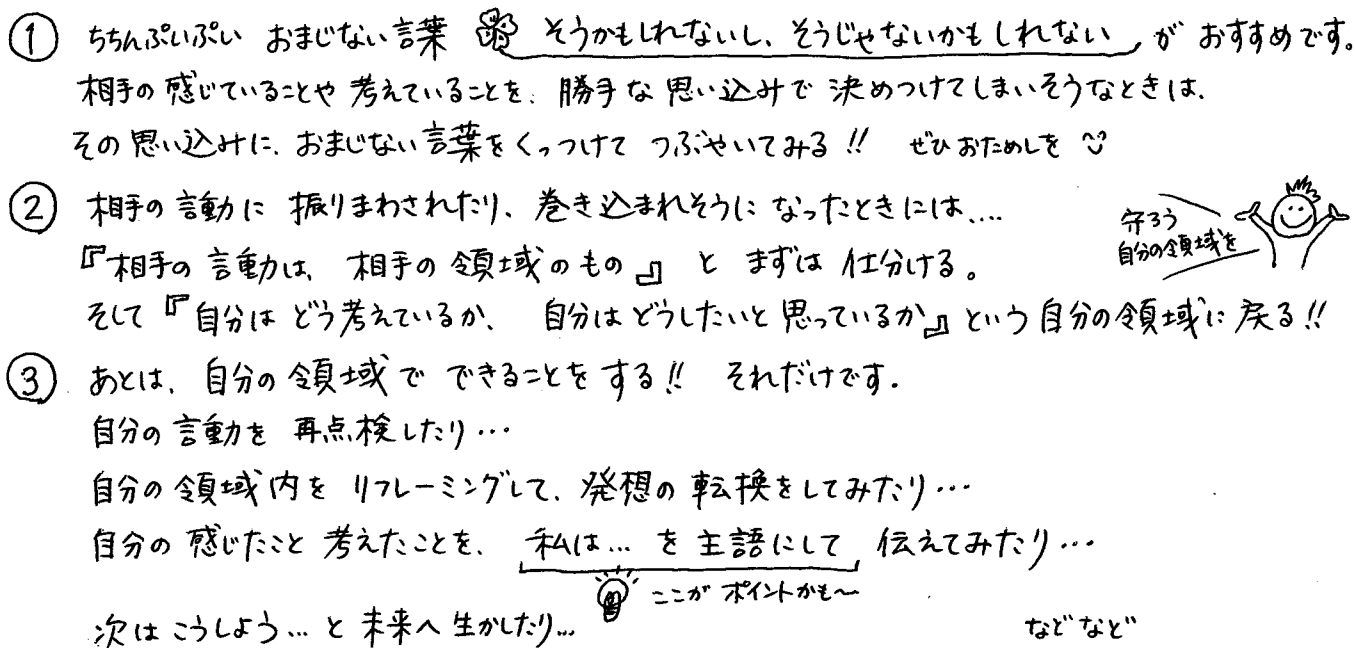 ① ちちんぷいぷい おまじない言葉 そうかもしれないし、そうじゃないかもしれない が おすすめです。
相手の感じていることや考えていることを、勝手な思い込みで 決めつけてしまいそうなときは、
その思い込みに、おまじない言葉をくっつけて つぶやいてみる!! ぜひおためしを
② 相手の言動に 振りまわされたり、巻き込まれそうに なったときには....
『相手の言動は、相手の領域のもの』 と まずは 仕分ける。
そして『自分は どう考えているか、 自分は どうしたいと思っているか』という 自分の領域に戻る!!
守ろう
自分の領域を
③ あとは、自分の領域で できることをする!! それだけです。
自分の言動を 再点検したり…
自分の領域内を リフレーミングして、発想の転換をしてみたり…
自分の感じたこと 考えたことを、 私は… を主語にして 伝えてみたり…
ここが ポイントかも〜
次は こうしよう… と 未来へ 生かしたり… などなど